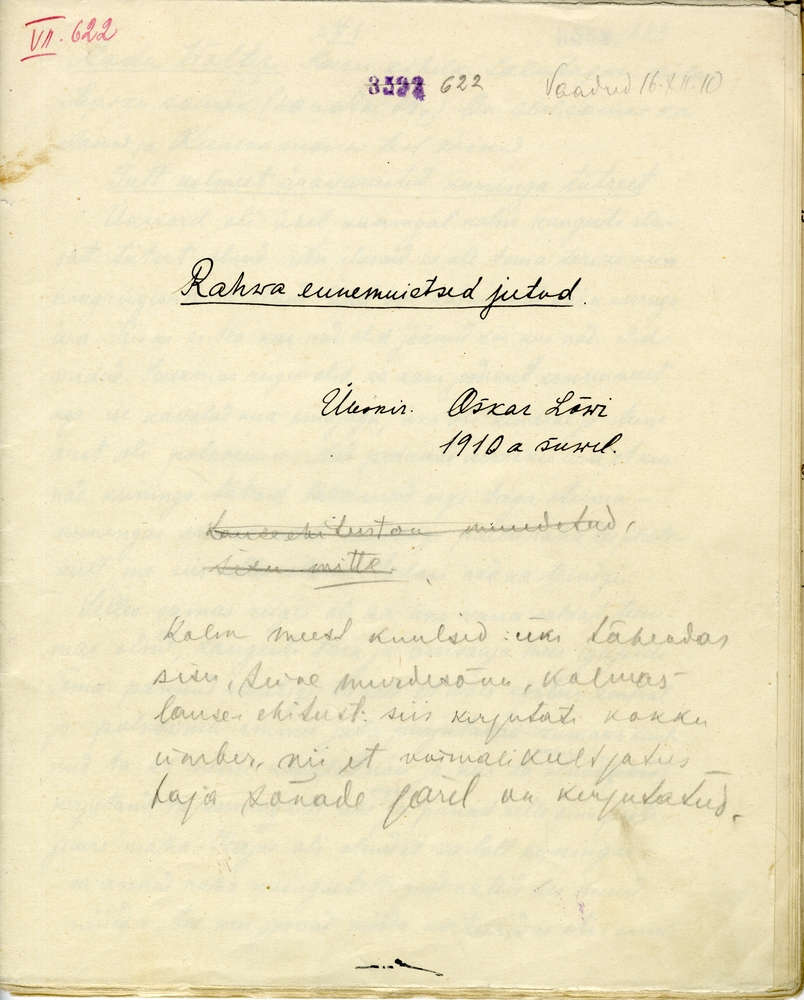 VII. 622
3592 622 Vaadud 16.XII.10
Rahwa ennemuistsed jutud.
Oskar Lõwi
1910 a suwel.
Lauseehitust on muudetud,
sisu mitte.
Kolm meest kuulsid: üks tähendas
sisu, teine murdesõnu, kolmas
lause ehitust: siis kirjutati kokku
ümber, nii et võimalikult jutus
taja sõnade järel on kirjutatud.